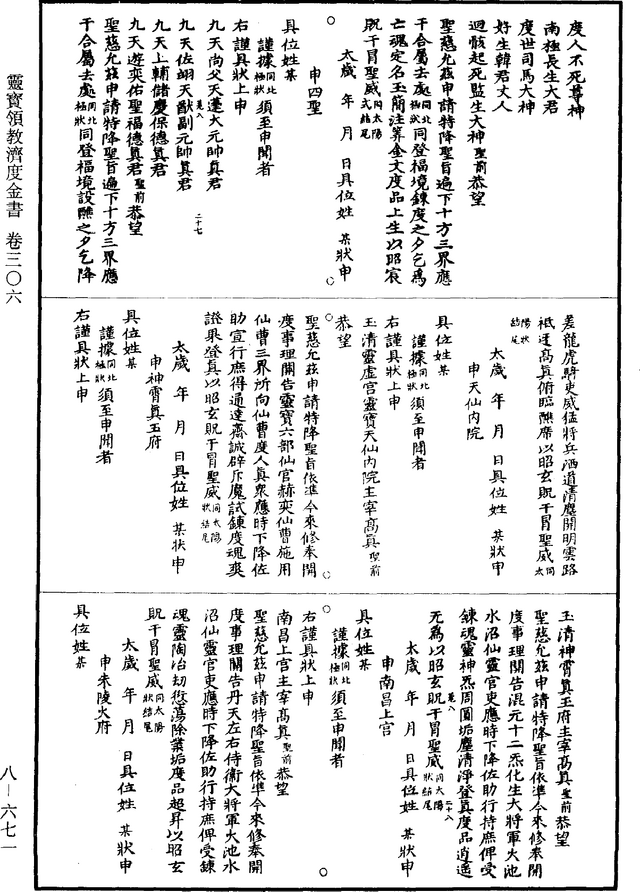 靈寶領教濟度金書　卷三〇六
八－六七一
度人不死尊神
南極長生大君
度世司馬大神
好生韓君丈人
迴骸起死監生大神聖前恭望
聖慈允茲申請特降聖旨遍下十方三界應
干合屬去處同北極狀同登福境鍊度之夕乞爲
亡魂定名玉簡注筭金文度品上生以昭宸
貺干冒聖威同太陽式結尾
太歲　年　月　日具位姓　某狀申
申四聖
具位姓某
謹據同北極狀須至申聞者
右謹具狀上申
九天尚父天蓬大元帥真君
九天佐翊天猷副元帥真君
九天上輔儲慶保德真君
九天遊奕佑聖福德真君聖前恭望
聖慈允茲申請特降聖旨遍下十方三界應
干合屬去處同北極狀同登福境設醮之夕乞降
二十七
差龍虎騎吏威猛將兵洒道清塵開明雲路
祗迓高真俯臨醮席以昭玄貺干冒聖威同太陽狀結尾
太歲　年　月　日具位姓　某狀申
申天仙內院
具位姓某
謹據同北極狀須至申聞者
右謹具狀上申
玉清靈虛宮靈寶天仙內院主宰高真聖前
恭望
聖慈允茲申請特降聖旨依準今來修奉開
度事理關告靈寶六部仙官赫奕仙曹施用
仙曹三界所向仙曹度人真衆應時下降佐
助宣行庶得通達齋誠辟斥魔試鍊度魂爽
證果登真以昭玄貺干冒聖威同太陽狀結尾
太歲　年　月　日具位姓　某狀申
申神霄真王府
具位姓某
謹據同北極狀須至申聞者
右謹具狀上申
玉清神霄真王府主宰高真聖前恭望
聖慈允茲申請特降聖旨依準今來修奉開
度事理關告混元十二炁化生大將軍火池
水沼仙靈官吏應時下降佐助行持庶俾受
鍊魂靈神炁周圓垢塵清淨登真度品逍遙
无爲以昭玄貺干冒聖威同太陽狀結尾
太歲　年　月　日具位姓　某狀申
申南昌上宮
具位姓某
謹據同北極狀須至申聞者
右謹具狀上申
南昌上宮主宰高真聖前恭望
聖慈允茲申請特降聖旨依準今來修奉開
度事理關告丹天左右侍衞大將軍火池水
沼仙靈官吏應時下降佐助行持庶俾受鍊
魂靈陶冶刧愆蕩除業垢度品超昇以昭玄
貺干冒聖威同太陽狀結尾
太歲　年　月　日具位姓　某狀申
申朱陵火府
具位姓某